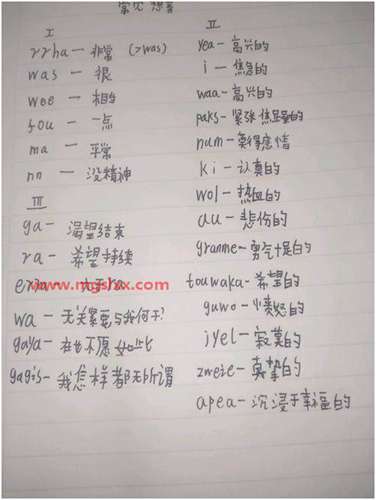 常见想音
I
rrha — 非常 (>was)
was — 很
wee — 相当
fou — 一点
ma — 平常
nn — 没精神
III
ga — 渴望结束
ra — 希望持续
erra — 大于ra
www.mgshx.com
wa — 无关紧要与我何干?
gaya — 在也不愿如此
gagis — 我怎样都无所谓
II
yea — 高兴的
i — 焦急的
waa — 高兴的
paks — 紧张焦虑的
num — 莫得感情
ki — 认真的
wol — 热血的
au — 悲伤的
granme — 勇气十足的
touwaka — 希望的
guwo — 愤怒的
jyel — 寂寞的
zweie — 真挚的
apea — 沉浸于幸福的